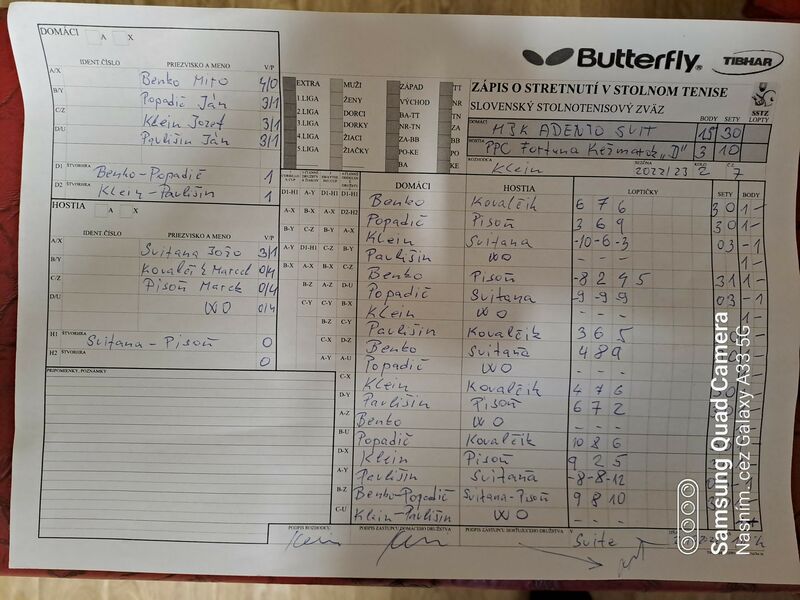 DOMÁCI A X
IDENT ČÍSLO PRIEZVISKO A MENO V/P
A/X Benko Miro 4/0
B/Y Popadič Ján 3/1
C/Z Klein Jozef 3/1
D/U Paulišin Ján 3/1
D1 ŠTVORHRA Benko-Popadič 1
D2 ŠTVORHRA Klein-Paulišin 1
HOSTIA A X
IDENT ČÍSLO PRIEZVISKO A MENO V/P
A/X Svitana Jožo 3/1
B/Y Kovalčik Marcel 0/4
C/Z Pisoň Marek 0/4
D/U WO 0/4
H1 ŠTVORHRA Svitana-Pisoň 0
H2 ŠTVORHRA 0
PRIPOMIENKY, POZNÁMKY
Butterfly® TIBHAR
EXTRA MUŽI ZÁPAD TT
1.LIGA ŽENY VÝCHOD NR
2.LIGA DORCI BA-TT TN
3.LIGA DORKY NR-TN ZA
4.LIGA ŽIACI ZA-BB BB
5.LIGA ŽIAČKY PO-KE PO
BA KE
ZÁPIS O STRETNUTÍ V STOLNOM TENISE
SLOVENSKÝ STOLNOTENISOVÝ ZVÄZ
SSTZ
BODY SETY LOPTY
DOMÁCI MBK ADENTO SVIT 15 30
HOSTIA PPC Fortuna Kežmarok „D" 3 10
ROZHODCA Klein SEZÓNA 2022/23 KOLO 2 Č. 7
DOMÁCI HOSTIA LOPTIČKY SETY BODY
Benko Kovalčik 6 7 6 3 0 1 -
Popadič Pisoň 3 6 9 3 0 1 -
Klein Svitana -10 -6 -3 0 3 - 1
Paulišin WO - - - 1 -
Benko Pisoň -8 2 9 5 3 1 1 -
Popadič Svitana -9 -9 -9 0 3 - 1
Klein WO - - -
Paulišin Kovalčik 3 6 5
Benko Svitana 4 8 9
Popadič WO - - -
Klein Kovalčik 4 7 6
Paulišin Pisoň 6 7 2
Benko WO - - -
Popadič Kovalčik 10 8 6
Klein Pisoň 9 2 5
Paulišin Svitana -8 -8 -12
Benko-Popadič Svitana-Pisoň 9 8 10
Klein-Paulišin WO - - -
PODPIS ROZHODCU PODPIS ZÁSTUPCU DOMÁCEHO DRUŽSTVA PODPIS ZÁSTUPCU HOSŤUJÚCEHO DRUŽSTVA
Svite
Samsung Quad Camera
Nasním. cez Galaxy A33 5G